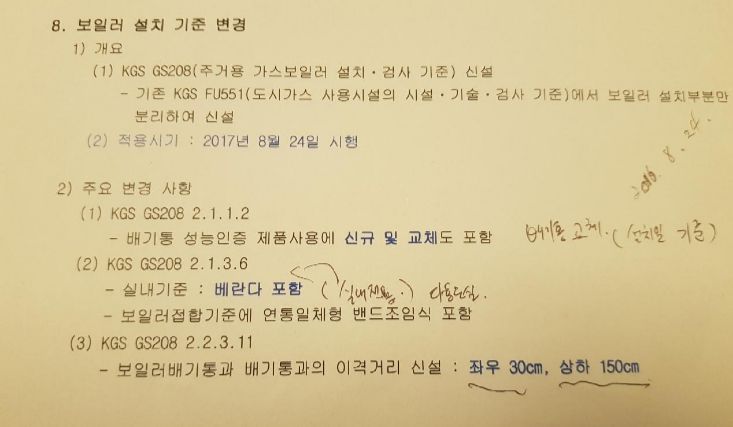 8. 보일러 설치 기준 변경
1) 개요
(1) KGS GS208(주거용 가스보일러 설치·검사 기준) 신설
- 기존 KGS FU551(도시가스 사용시설의 시설·기술·검사 기준)에서 보일러 설치부분만
분리하여 신설
(2) 적용시기 : 2017년 8월 24일 시행
2016. 8. 24.
2) 주요 변경 사항
(1) KGS GS208 2.1.1.2
- 배기통 성능인증 제품사용에 신규 및 교체도 포함 배기통 교체. (설치일 기준)
(2) KGS GS208 2.1.3.6
- 실내기준 : 베란다 포함
- 보일러접합기준에 연통일체형 밴드조임식 포함
(3) KGS GS208 2.2.3.11
- 보일러배기통과 배기통과의 이격거리 신설 : 좌우 30cm, 상하 150cm